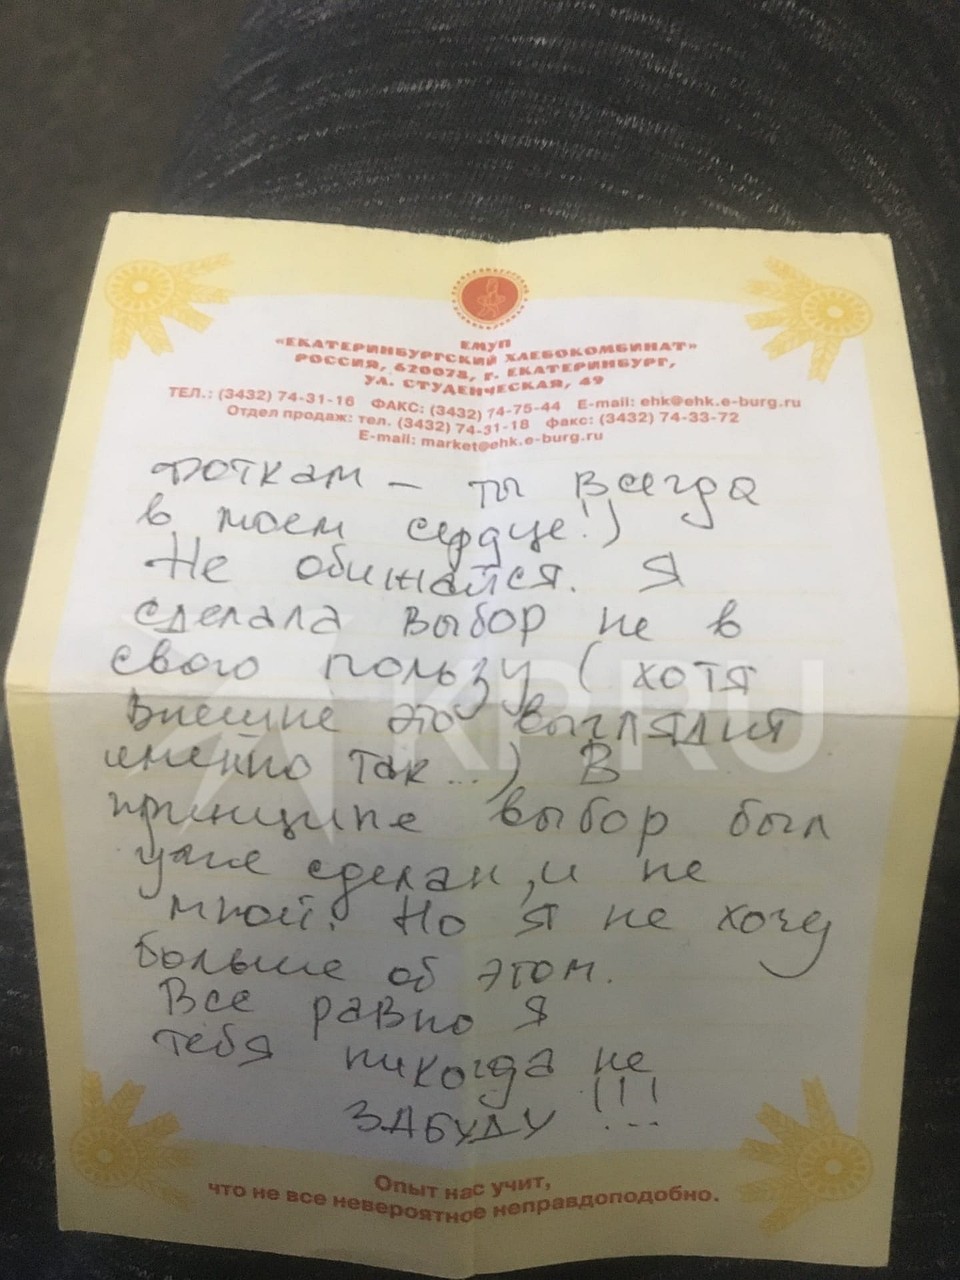 ЕМУП
«ЕКАТЕРИНБУРГСКИЙ ХЛЕБОКОМБИНАТ»
РОССИЯ, 620078, г. ЕКАТЕРИНБУРГ,
УЛ. СТУДЕНЧЕСКАЯ, 49
ТЕЛ.: (3432) 74-31-16 ФАКС: (3432) 74-75-44 E-mail: ehk@ehk.e-burg.ru
Отдел продаж: тел. (3432) 74-31-18 Факс: (3432) 74-33-72
E-mail: market@ehk.e-burg.ru
фоткам – ты всегда
в моем сердце!)
Не обижайся. Я
сделала выбор не в
свою пользу (хотя
внешне это выглядит
именно так...) В
принципе выбор был
уже сделан, и не
мной. Но я не хочу
больше об этом.
Все равно я
тебя никогда не
ЗАБУДУ!!!
Опыт нас учит,
что не все невероятное неправдоподобно.
KP.RU